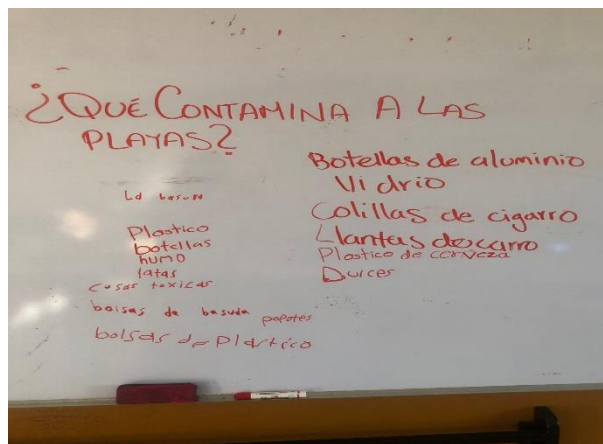 ¿QUÉ CONTAMINA A LAS
PLAYAS?
La basura
Plastico
botellas
humo
latas
cosas toxicas
bolsas de basuda popotes
bolsas de Plastico
Botellas de aluminio
Vidrio
Colillas de cigarro
Llantas de carro
Plastico de cerveza
Dulces